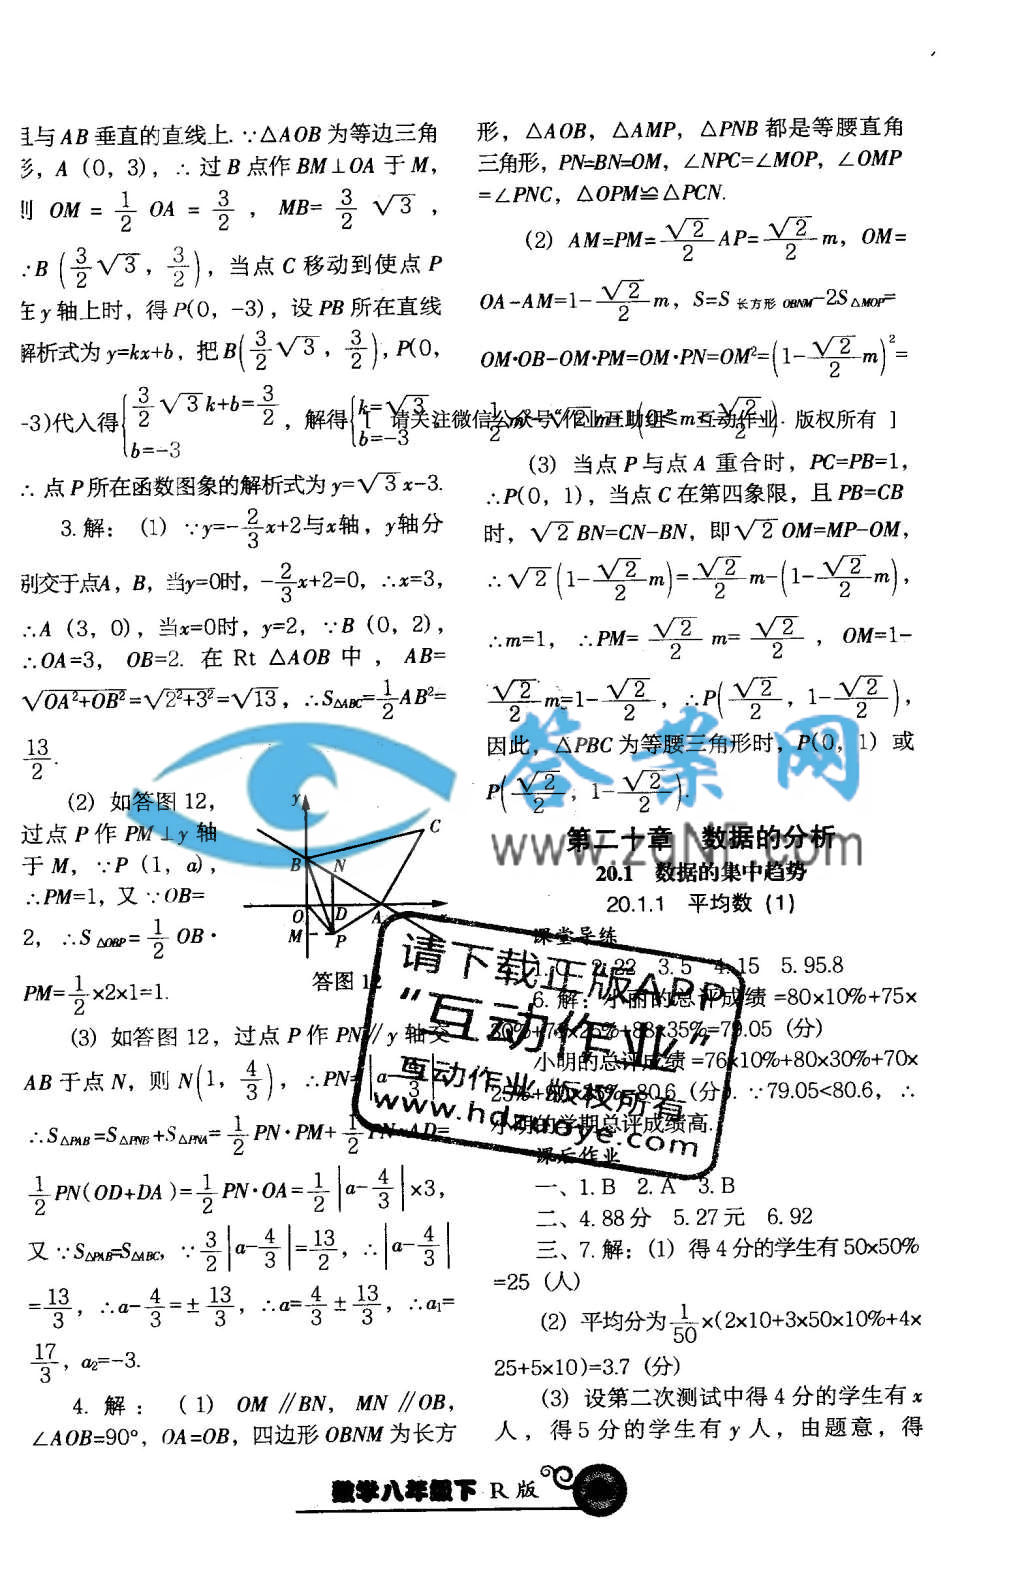 与AB垂直的直线上.∵△AOB为等边三角
A（0，3），∴过B点作BM⊥OA于M，
OM=1/2 OA=3/2，MB=3/2 √3，
∴B(3/2 √3，3/2)，当点C移动到使点P
y轴上时，得P(0，-3)，设PB所在直线
解析式为y=kx+b，把B(3/2 √3，3/2)，P(0，
-3)代入得{3/2 √3 k+b=3/2，b=-3，解得{k=√3，b=-3
∴点P所在函数图象的解析式为y=√3 x-3.
3.解：（1）∵y=-2/3 x+2与x轴，y轴分
别交于点A，B，当y=0时，-2/3 x+2=0，∴x=3，
∴A（3，0），当x=0时，y=2，∵B（0，2），
∴OA=3，OB=2.在Rt△AOB中，AB=
√OA²+OB²=√2²+3²=√13，∴S△ABC=1/2 AB²=
13/2.
（2）如答图12，
过点P作PM⊥y轴
于M，∵P（1，a），
∴PM=1，又∵OB=
2，∴S△OBP=1/2 OB·
PM=1/2×2×1=1.
y
C
B
N
O
D
A
M
P
答图12
（3）如答图12，过点P作PN∥y轴交
AB于点N，则N(1，4/3)，∴PN=|a-4/3|
∴S△PAB=S△PNB+S△PNA=1/2 PN·PM+1/2 PN·AD=
1/2 PN(OD+DA)=1/2 PN·OA=1/2|a-4/3|×3，
又∵S△PAB=S△ABC，∵3/2|a-4/3|=13/2，∴|a-4/3|
=13/3，∴a-4/3=±13/3，∴a=4/3±13/3，∴a₁=
17/3，a₂=-3.
4.解：（1）OM∥BN，MN∥OB，
∠AOB=90°，OA=OB，四边形OBNM为长方
形，△AOB，△AMP，△PNB都是等腰直角
三角形，PN=BN=OM，∠NPC=∠MOP，∠OMP
=∠PNC，△OPM≌△PCN.
（2）AM=PM=√2/2 AP=√2/2 m，OM=
OA-AM=1-√2/2 m，S=S长方形OBNM-2S△MOP=
OM·OB-OM·PM=OM·PN=OM²=(1-√2/2 m)²=
[ 请关注微信公众号"作业互助组" 互动作业. 版权所有 ]
（3）当点P与点A重合时，PC=PB=1，
∴P(0，1)，当点C在第四象限，且PB=CB
时，√2 BN=CN-BN，即√2 OM=MP-OM，
∴√2(1-√2/2 m)=√2/2 m-(1-√2/2 m)，
∴m=1，∴PM=√2/2 m=√2/2，OM=1-
√2/2 m=1-√2/2，∴P(√2/2，1-√2/2)，
因此，△PBC为等腰三角形时，P(0，1)或
P(√2/2，1-√2/2).
答案网
www.zqnf.com
第二十章 数据的分析
20.1 数据的集中趋势
20.1.1 平均数（1）
课堂导练
1.C 2.22 3.5 4.15 5.95.8
6.解：小丽的总评成绩=80×10%+75×
×25%+88×35%=79.05（分）
小明的总评成绩=76×10%+80×30%+70×
25%+90×35%=80.6（分）.∵79.05<80.6，∴
小明的学期总评成绩高.
请下载正版APP
"互动作业"
互动作业 版权所有
www.hdzuoye.com
课后作业
一、1.B 2.A 3.B
二、4.88分 5.27元 6.92
三、7.解：（1）得4分的学生有50×50%
=25（人）
（2）平均分为1/50×(2×10+3×50×10%+4×
25+5×10)=3.7（分）
（3）设第二次测试中得4分的学生有x
人，得5分的学生有y人，由题意，得
数学八年级下 R版